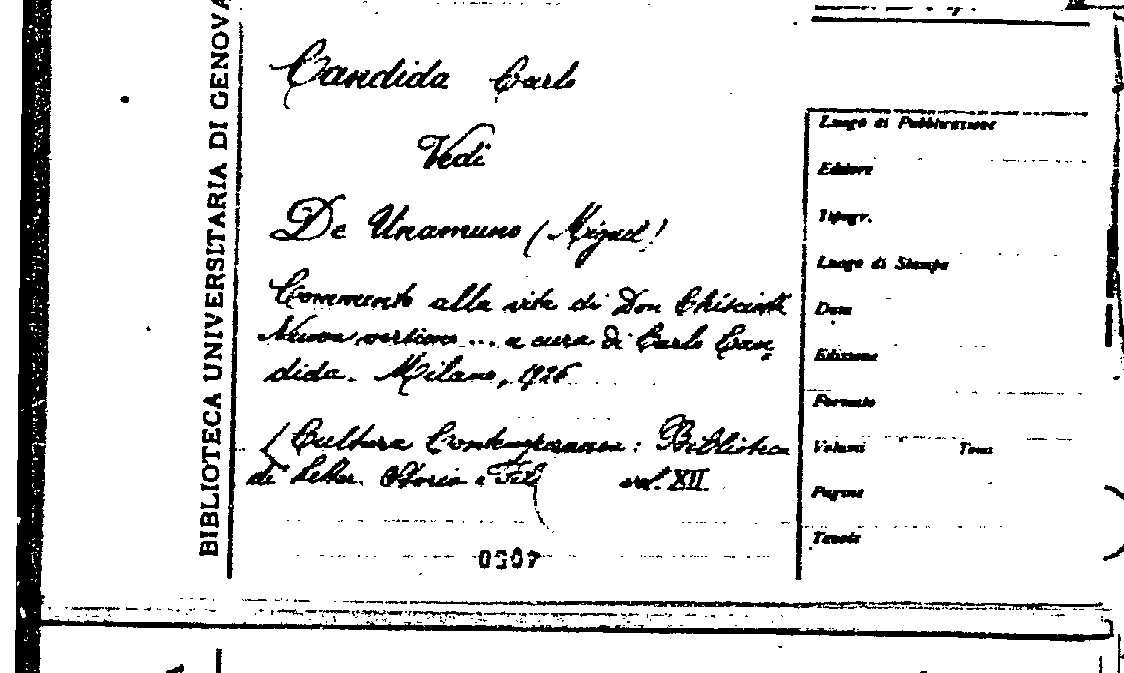 BIBLIOTECA UNIVERSITARIA DI GENOVA
Candida Carlo
Vedi
De Unamuno (Miguel)
Commento alla vita di Don Chisciotte
Nuova versione ... a cura di Carlo Can
dida. Milano, 1926
(Cultura Contemporanea: Biblioteca
di Letter. Storia e Fil vol. XII.
0507
Luogo di Pubblicazione
Editore
Tipogr.
Luogo di Stampa
Data
Edizione
Formato
Volumi Tomi
Pagine
Tavole